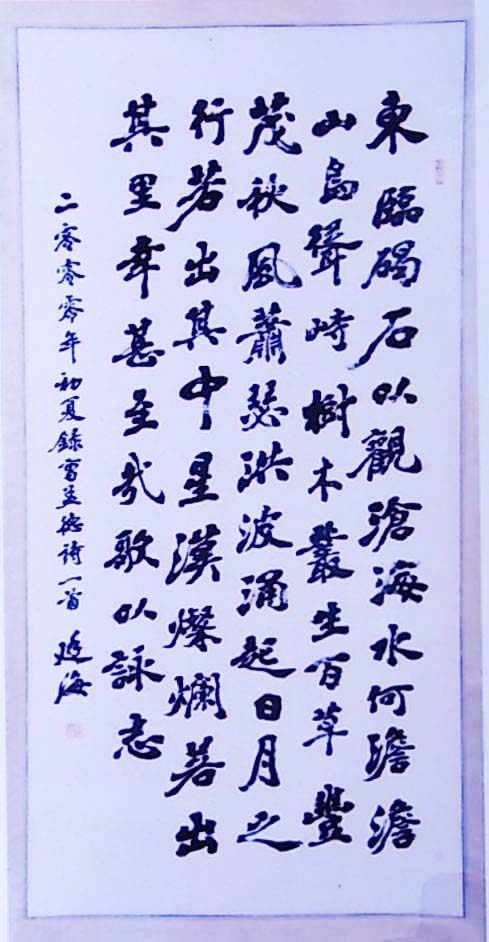 東臨碣石以觀滄海水何澹澹
山島聳峙樹木叢生百草豐
茂秋風蕭瑟洪波涌起日月之
行若出其中星漢燦爛若出
其里幸甚至哉歌以詠志
二零零零年初夏録曹孟德詩一首 延海